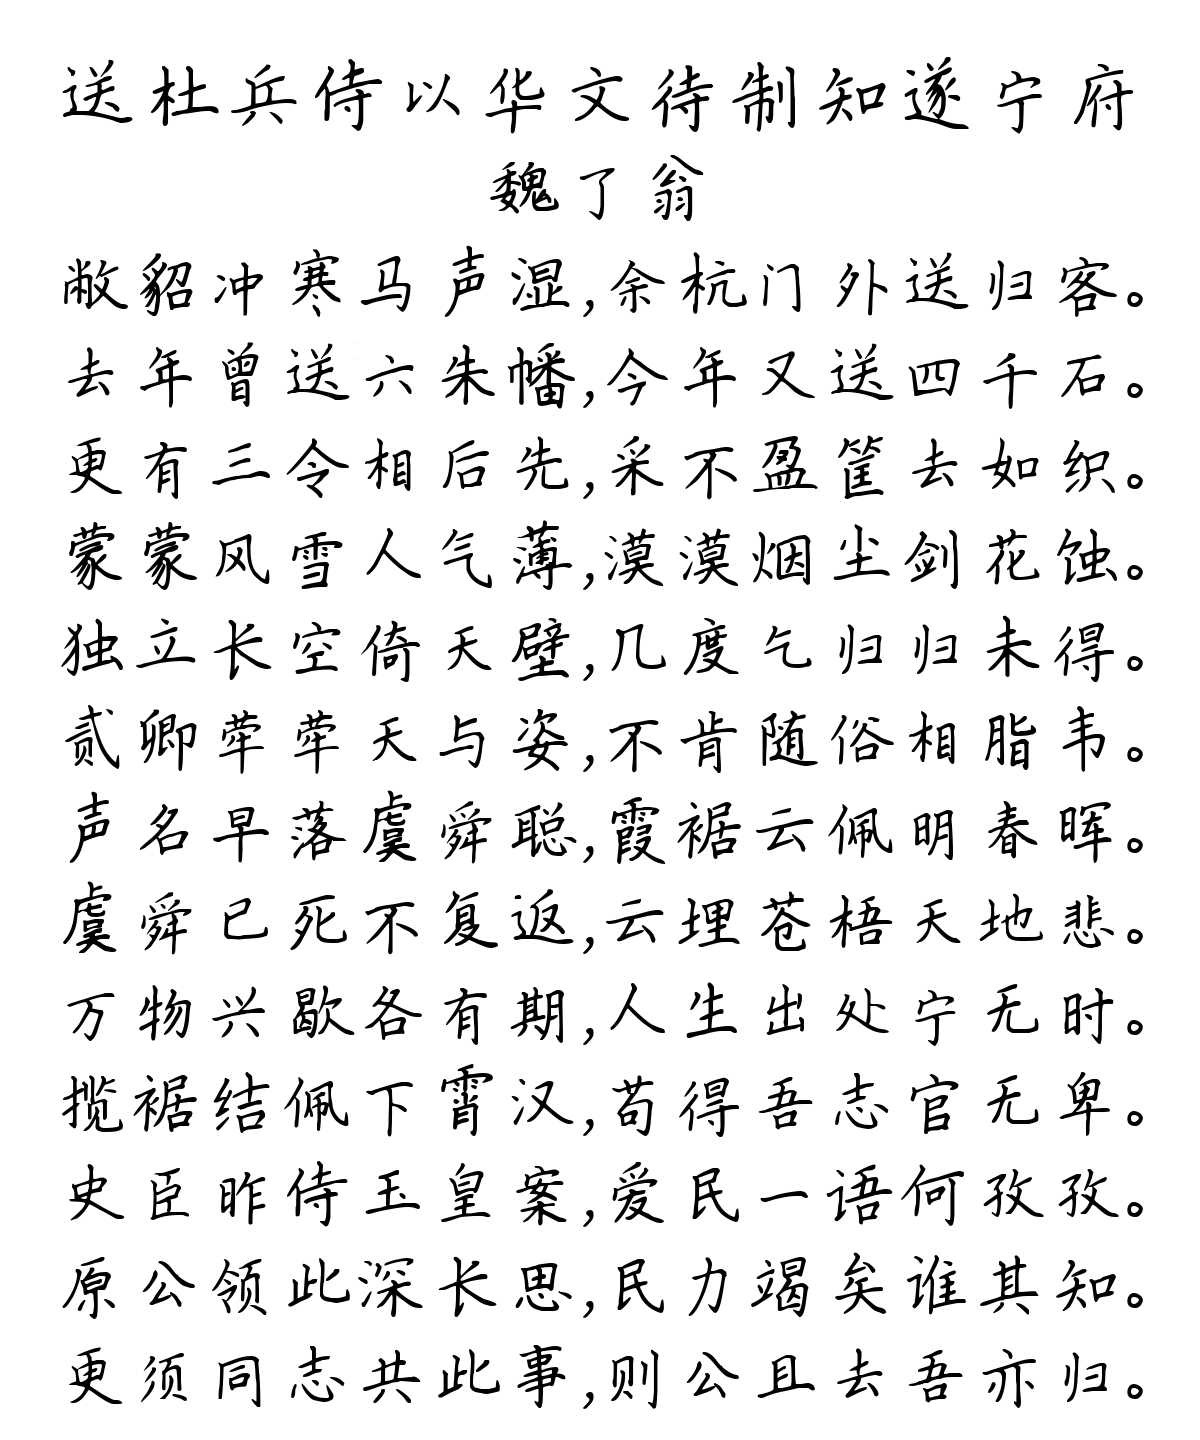 送杜兵侍以华文待制知遂宁府
魏了翁
敝貂冲寒马声湿,余杭门外送归客。
去年曾送六朱幡,今年又送四千石。
更有三令相后先,采不盈筐去如织。
蒙蒙风雪人气薄,漠漠烟尘剑花蚀。
独立长空倚天壁,几度乞归归未得。
贰卿荦荦天与姿,不肯随俗相脂韦。
声名早落虞舜聪,霞裾云佩明春晖。
虞舜已死不复返,云埋苍梧天地悲。
万物兴歇各有期,人生出处宁无时。
揽裾结佩下霄汉,苟得吾志官无卑。
史臣昨侍玉皇案,爱民一语何孜孜。
原公领此深长思,民力竭矣谁其知。
更须同志共此事,则公且去吾亦归。